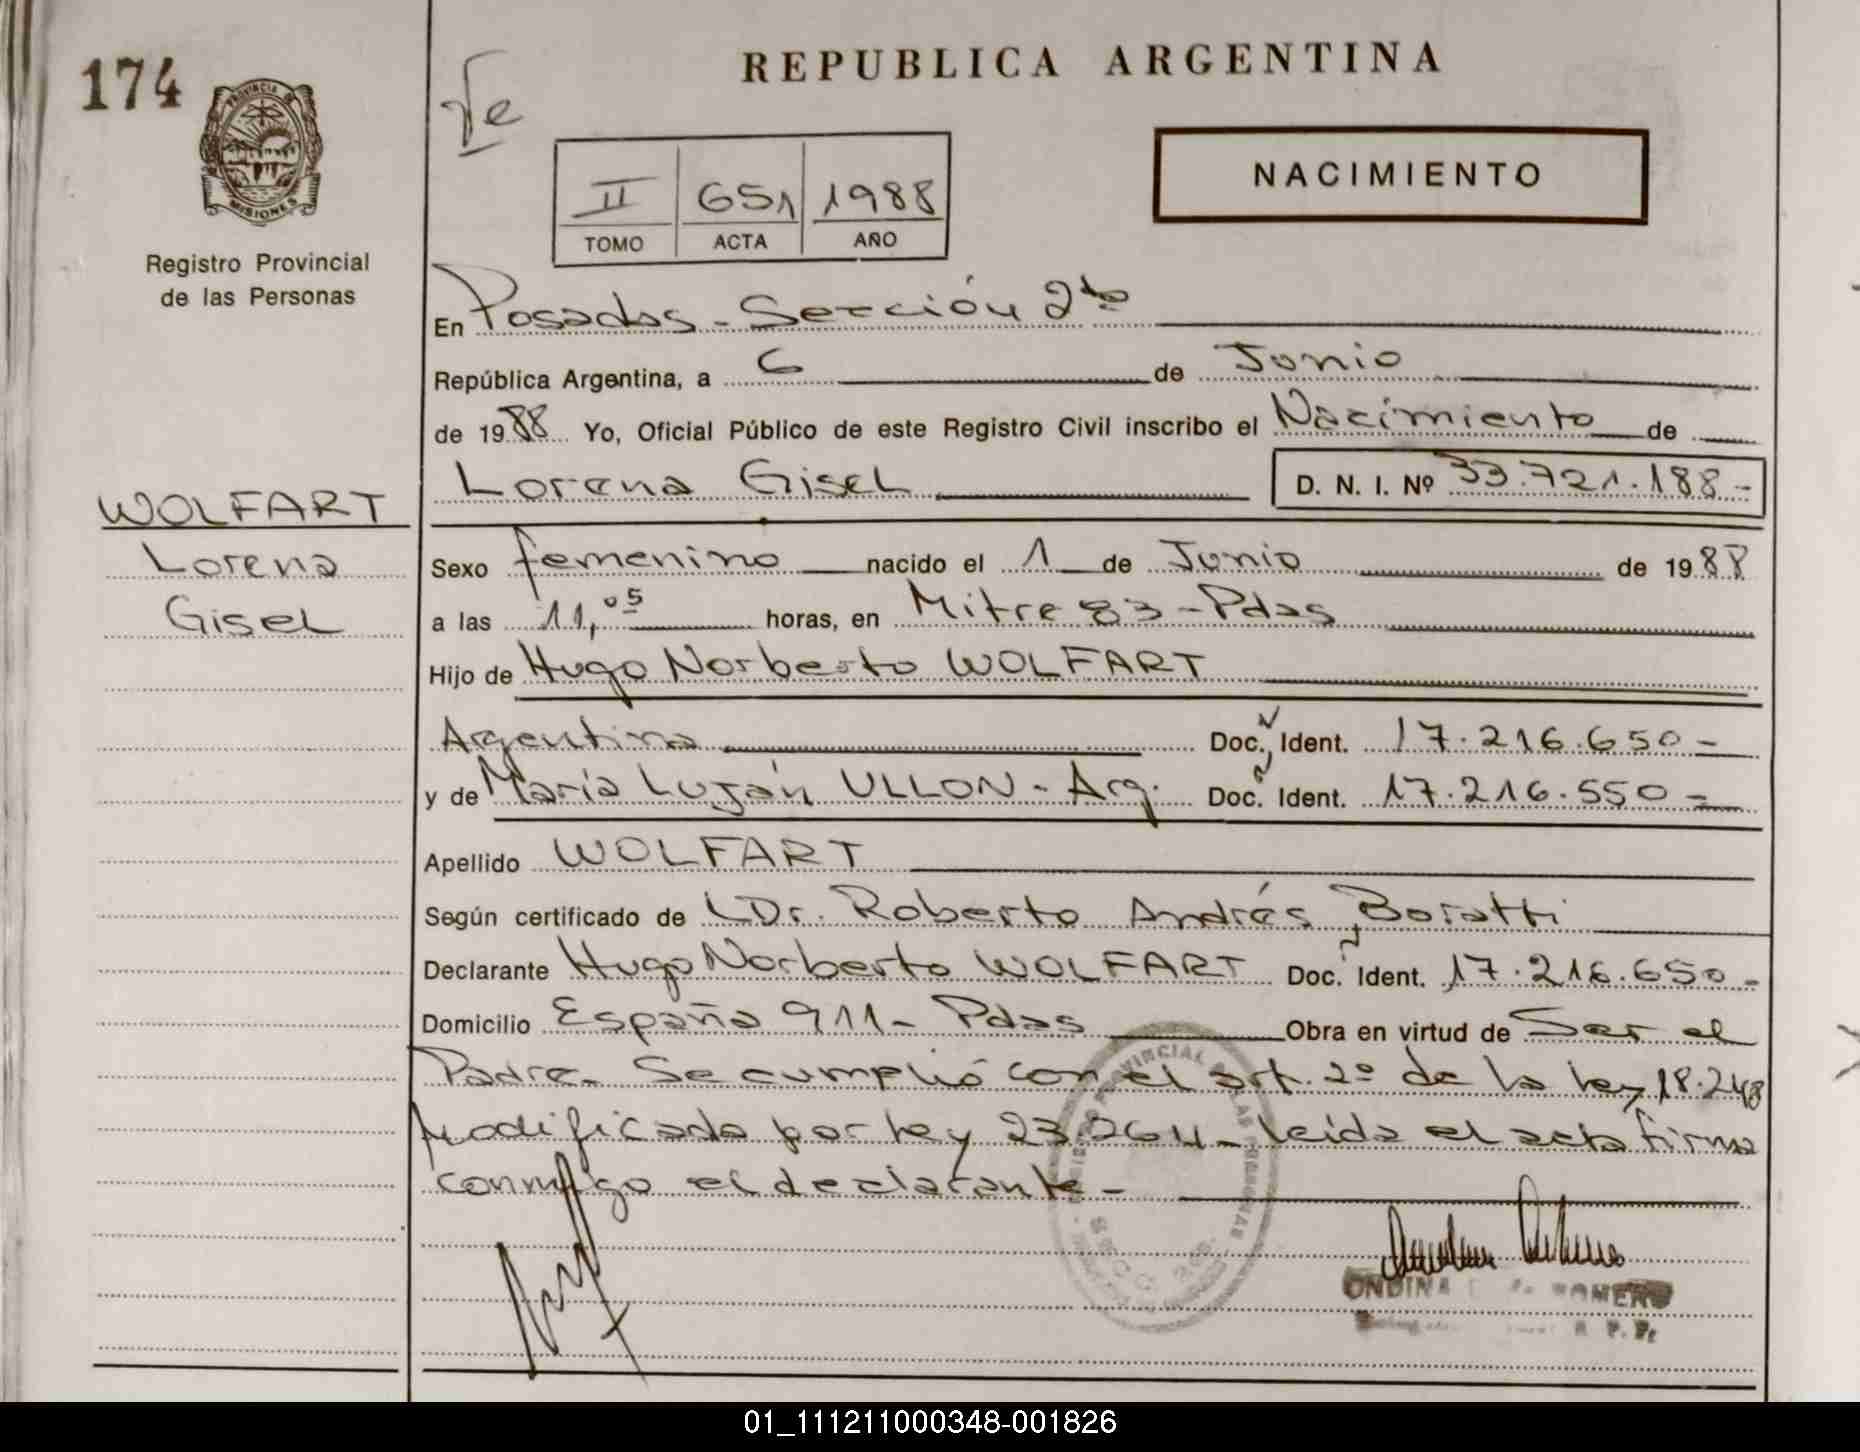 174
REPUBLICA ARGENTINA
PROVINCIA DE
MISIONES
Registro Provincial
de las Personas
II 651 1988
TOMO ACTA AÑO
NACIMIENTO
En Posadas - Sección 2da
República Argentina, a 6 de Junio
de 1988 Yo, Oficial Público de este Registro Civil inscribo el Nacimiento de
Lorena Gisel D. N. I. Nº 33.721.188-
WOLFART
Lorena
Gisel
Sexo femenino nacido el 1 de Junio de 1988
a las 11,05 horas, en Mitre 83 - Pdas
Hijo de Hugo Norberto WOLFART
Argentina Doc. Ident. 17.216.650-
y de María Luján ULLON - Arg. Doc. Ident. 17.216.550-
Apellido WOLFART
Según certificado de Dr. Roberto Andrés
Declarante Hugo Norberto WOLFART Doc. Ident. 17.216.650-
Domicilio España 911 - Pdas Obra en virtud de Ser el
Padre. Se cumplió con el art. 2º de la ley 18.248
modificada por ley 23.264 - leída el acta firma
conmigo el declarante -
ONDINA ROMERO
01_111211000348-001826